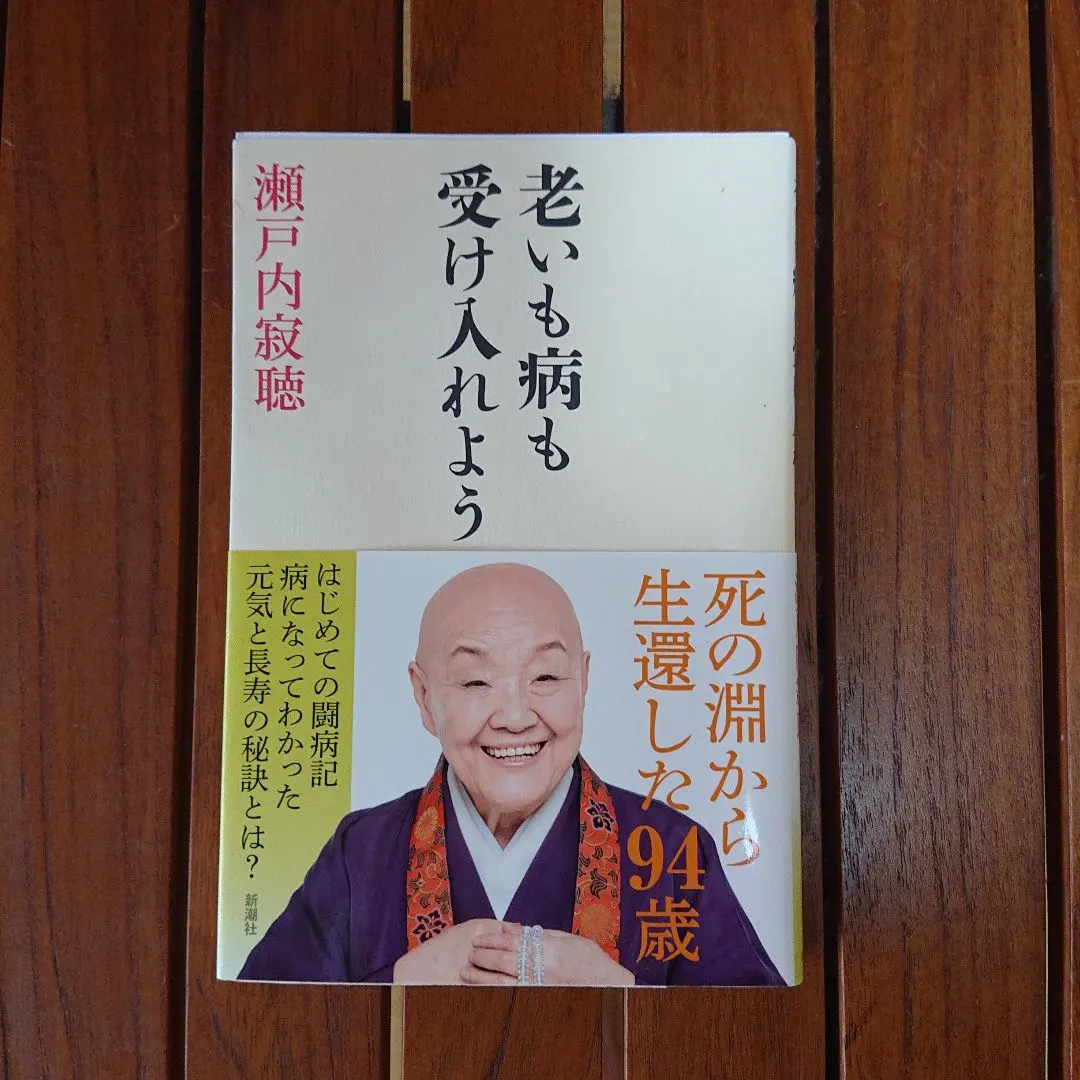 老いも病も
受け入れよう
瀬戸内寂聴
死の淵から
生還した94歳
はじめての闘病記
病になってわかった
元気と長寿の秘訣とは?
新潮社